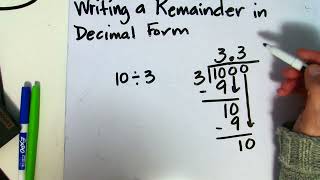 Writing a Remainder in
Decimal Form
3.3
10÷3
3 1000
- 9
10
- 9
10
EXPO